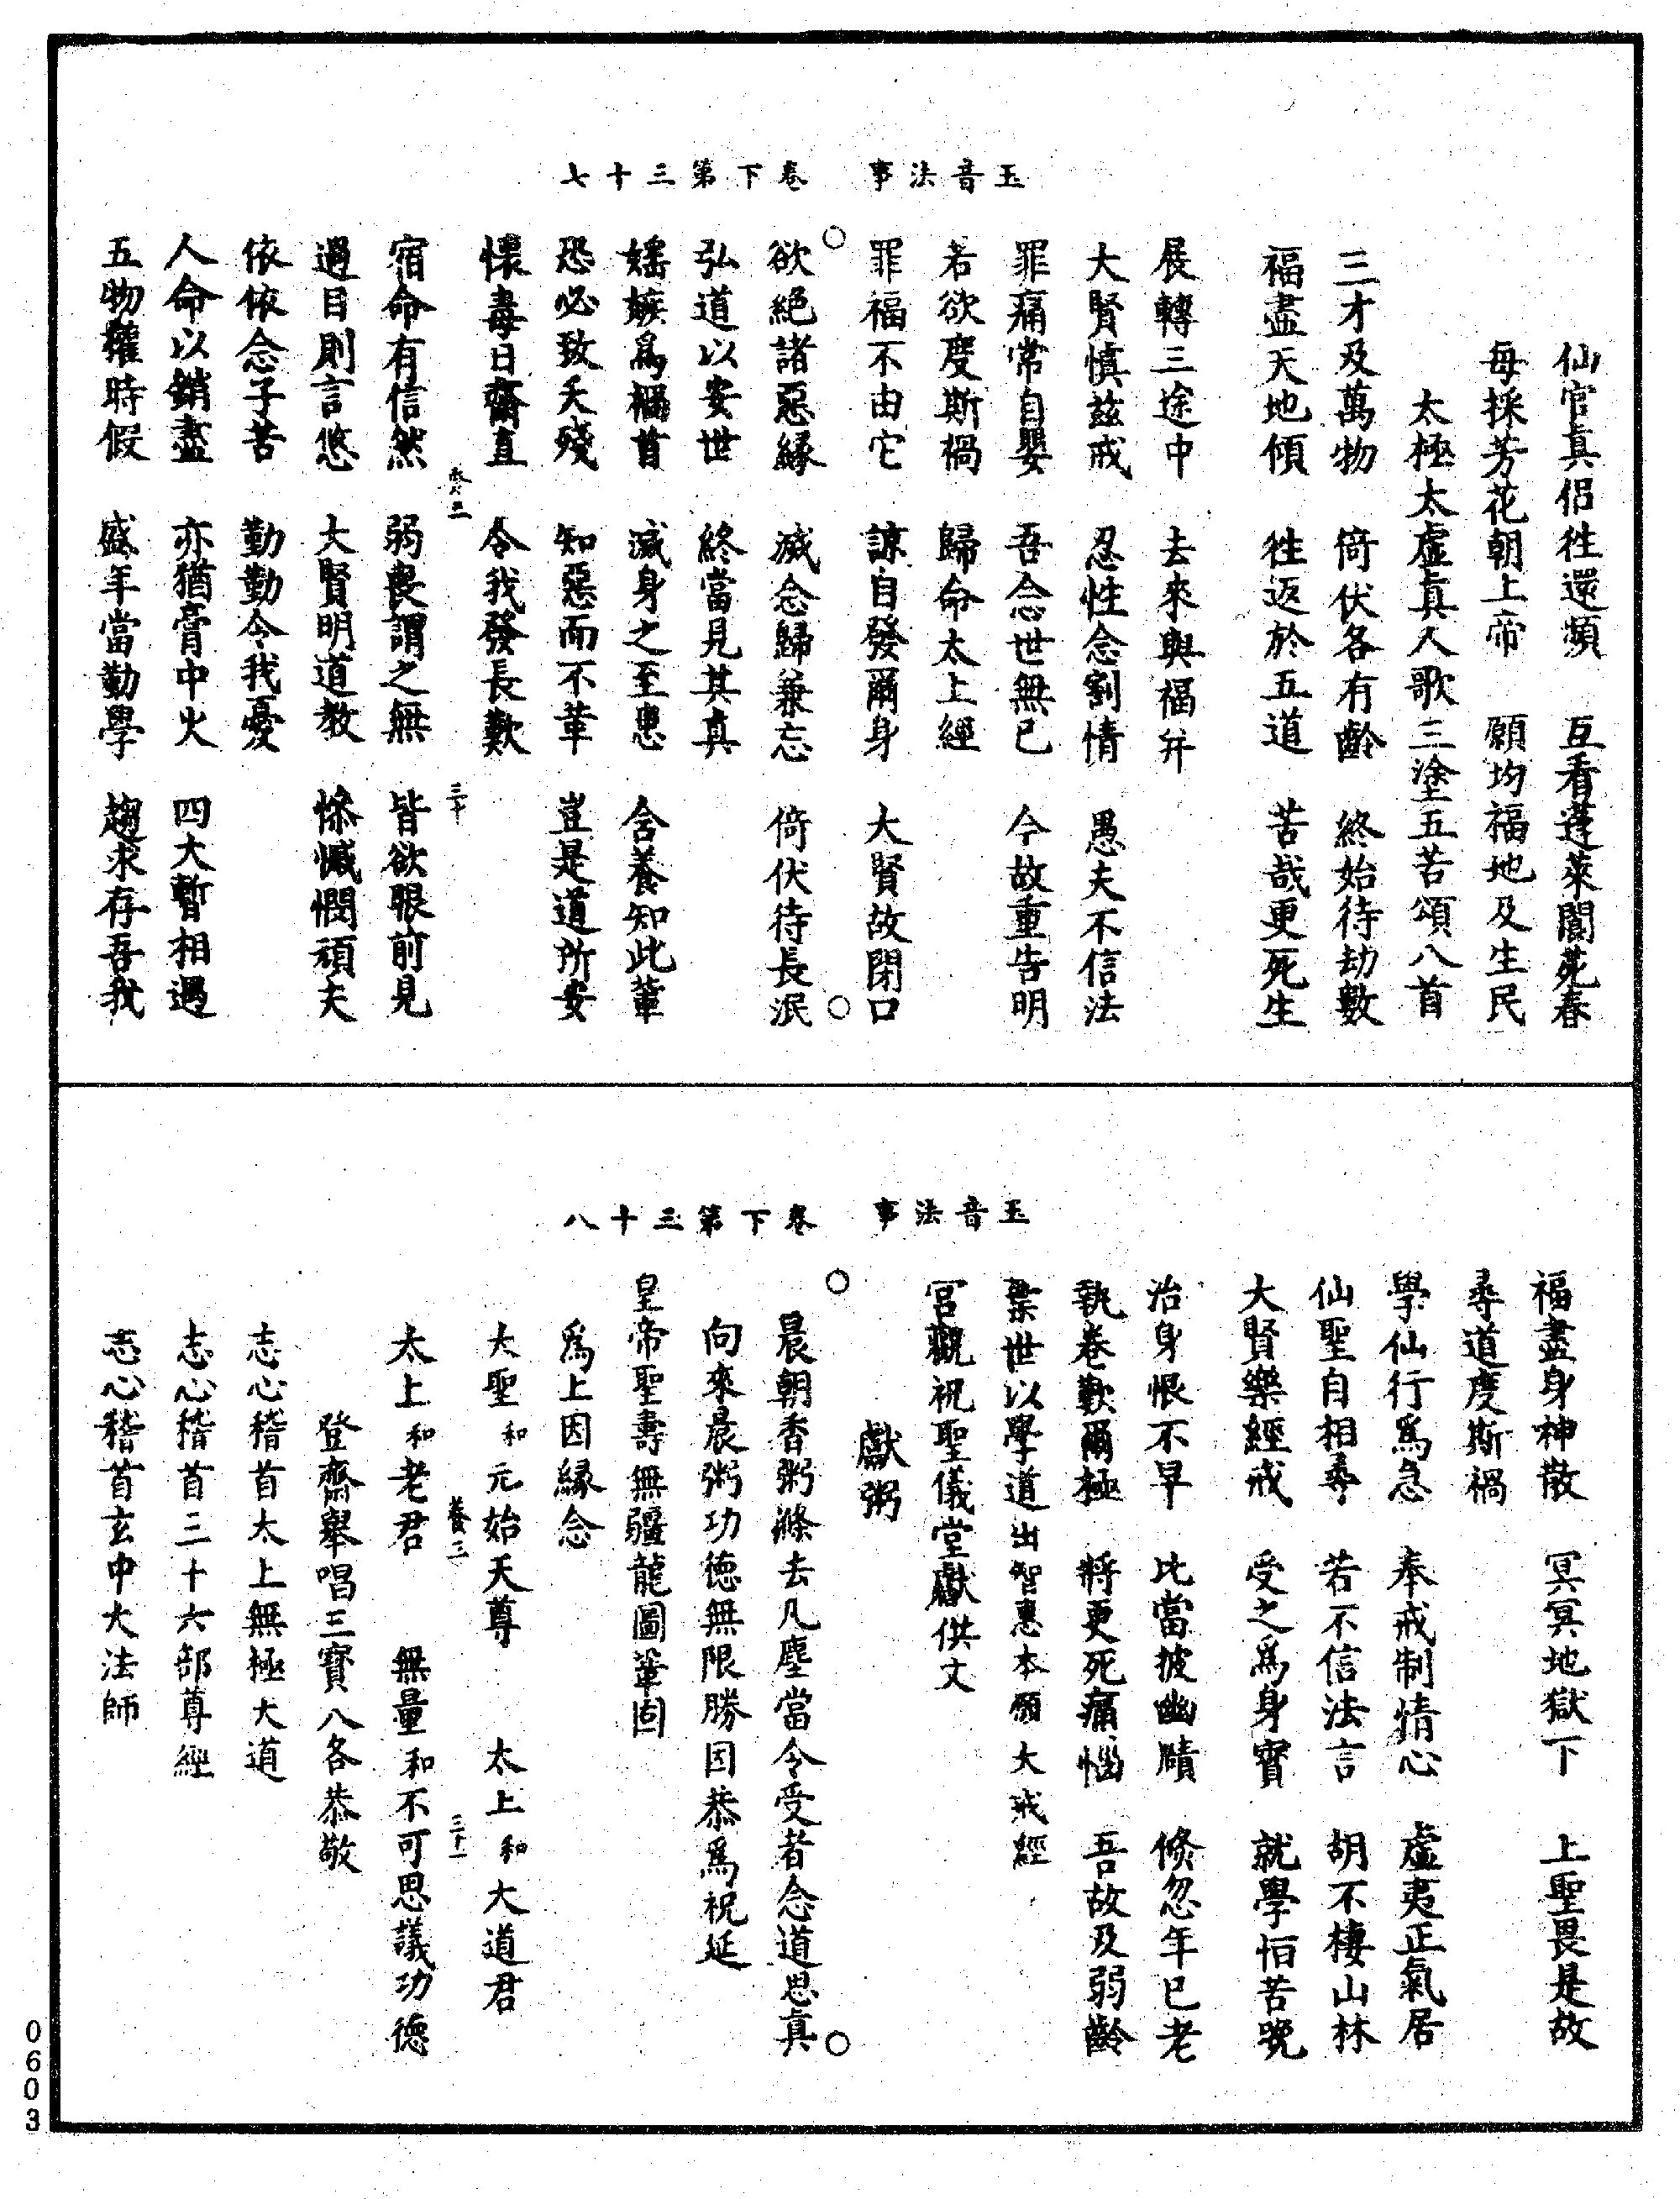 玉音法事　卷下第三十七
仙官真侶徃還頻　互看蓬萊閬苑春
每採芳花朝上帝　願均福地及生民
太極太虛真人歌三塗五苦頌八首
三才及萬物　倚伏各有齡　終始待劫數
福盡天地傾　徃返於五道　苦哉更死生
展轉三途中　去來與福并
大賢慎兹戒　忍性念割情　愚夫不信法
罪痛常自嬰　吾念世無已　今故重告明
若欲度斯禍　歸命太上經
罪福不由它　諒自發爾身　大賢故閉口
欲絕諸惡緣　滅念歸兼忘　倚伏待長泯
弘道以安世　終當見其真
婬嫉爲禍首　滅身之至患　含養知此輩
恐必致夭殘　知惡而不革　豈是道所安
懷毒日齋直　令我發長歎
養三　三十
宿命有信然　弱喪謂之無　皆欲眼前見
過目則言悠　大賢明道教　慘慽憫頑夫
依依念子苦　勤勤令我憂
人命以銷盡　亦猶膏中火　四大暫相過
五物權時假　盛年當勤學　趨求存吾我
玉音法事　卷下第三十八
福盡身神散　冥冥地獄下　上聖畏是故
尋道度斯禍
學仙行爲急　奉戒制情心　虛夷正氣居
仙聖自相尋　若不信法言　胡不棲山林
大賢樂經戒　受之爲身寶　就學怕苦晚
治身恨不早　比當披幽賾　倏忽年已老
執卷歎爾極　將更死痛惱　吾故及弱齡
棄世以學道出智惠本願大戒經
宫觀祝聖儀堂獻供文
獻粥
晨朝香粥滌去凡塵當令受者念道思真
向來晨粥功德無限勝因恭爲祝延
皇帝聖壽無疆龍圖鞏固
爲上因緣念
大聖和元始天尊　太上和大道君
養三　三十一
太上和老君　無量和不可思議功德
登齋舉唱三寳八各恭敬
志心稽首太上無極大道
志心稽首三十六部尊經
志心稽首玄中大法師
0603